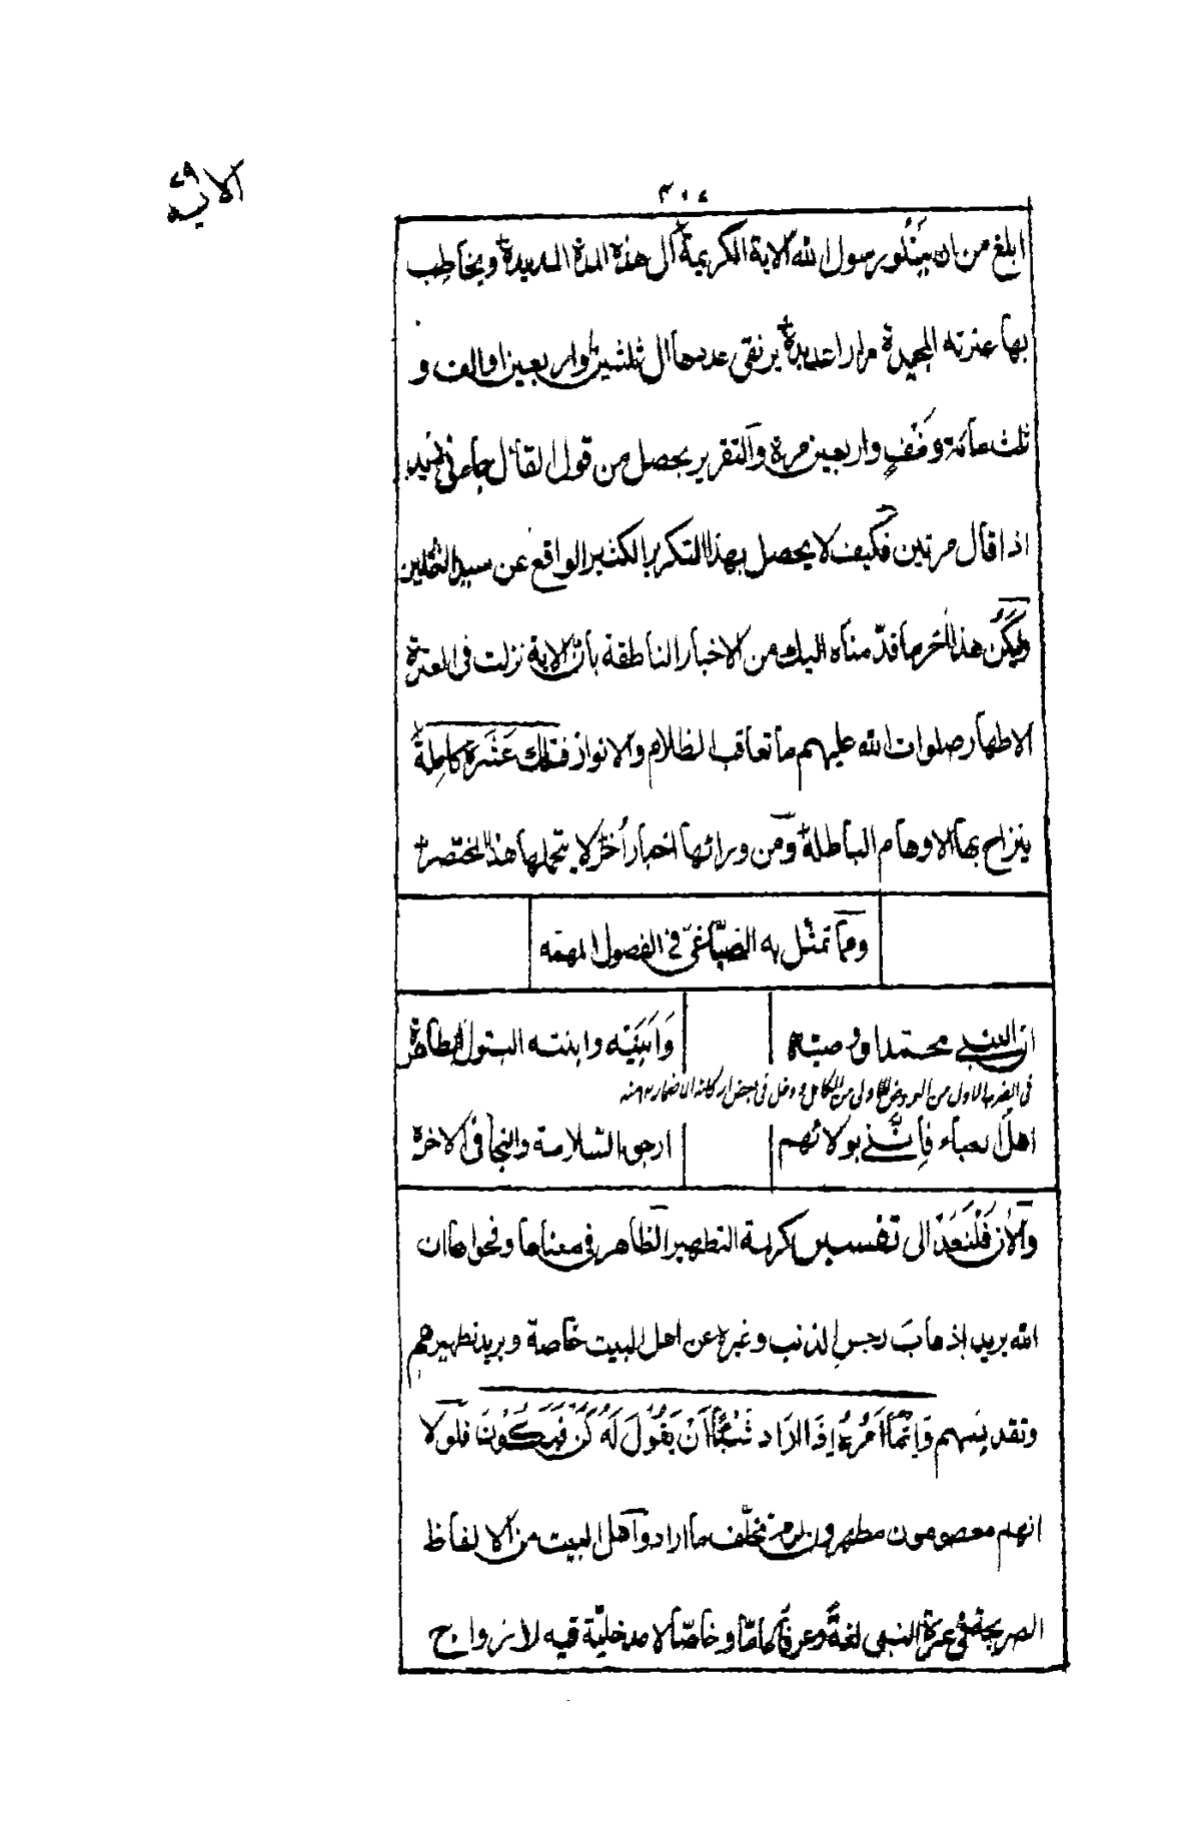 الآية ٧٩
٣٠٤
ابلغ من ان يتلو رسول الله الاية الكريمة الى هذه المدة المديدة ويخاطب
بها عترته المجيدة مرارا عديدة يرتقى عددها الى ثلثين او اربعين او الف و
ثلث مائة ونَيِّف واربعين مرة والتقرير يحصل من قول القائل جاءنى زيد
اذا قال مرتين فكيف لا يحصل بهذا التكرير الكثير الواقع عن سيد الثقلين
وليكن هذا آخر ما قدّمناه اليك من الاخبار الناطقة بانّ الاية نزلت فى العترة
الاطهار صلوات الله عليهم ما تعاقب الظلام والانوار فتلك عَشَرَة كامِلة
ينزاح بها الاوهام الباطلة ومن ورائها اخبار اُخَر لا يتحملها هذا المختصر
ومما تمثّل به الصبّاغىّ فى الفصول المهمه
انّ النبى محمّدا ووصيّه وَابنَيْه وابنته البتول الطاهرة
فى الضرب الاول من العروض الاولى من الكامل و دخل فى بعض اركانه الاضمار منه
اهل العباء فإنّنى بولائهم ارجو السّلامة والنجا فى الاخرة
والآن فَلْنَعُدْ الى تفسير كريمة التطهير الظاهر فى معناها وفحواها ان
الله يريد إذهابَ رجسِ الذنب وغيره عن اهل البيت خاصة ويريد تطهيرهم
وتقديسهم وَانَّمَا اَمْرُهُ اِذَا اَرَادَ شَيْئًا اَنْ يَقُولَ لَهُ كُنْ فَيَكُونُ فلولا
انهم معصومون مطهرون لزم تخلّف ما اراد واهل البيت من الالفاظ
الصريحة فى عترة النبى لغةً وعرفاً عامّا وخاصّا لا مدخليّة فيه لازواج